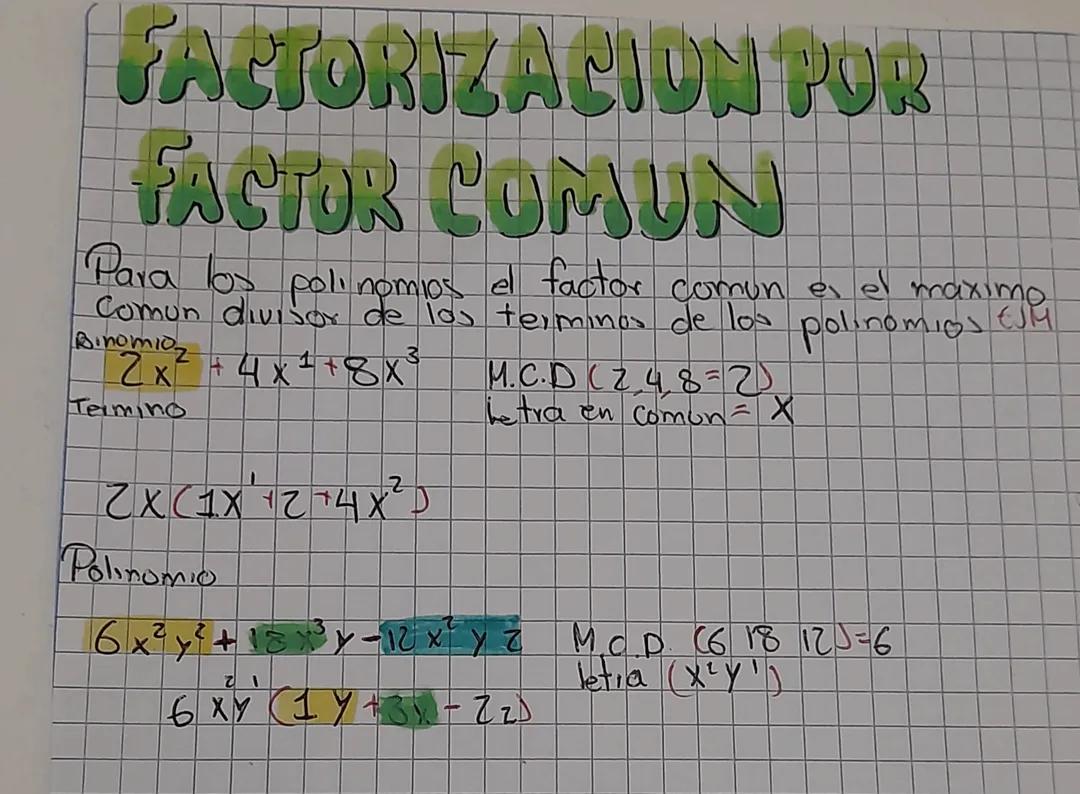 FACTORIZACION POR
FACTOR COMUN
Para los polinomios el factor comun es el maximo
comun divisor de los terminos de los polinomios EJM
Binomio
2x² + 4x¹ + 8x³ M.C.D (2,4,8=2)
Termino letra en comun = x
2x(1x¹+2+4x²)
Polinomio
6x²y² + 18x³y - 12x²yz M.C.D. (6 18 12)=6
letra (x²y¹)
6x²y¹(1y+3x-2z)